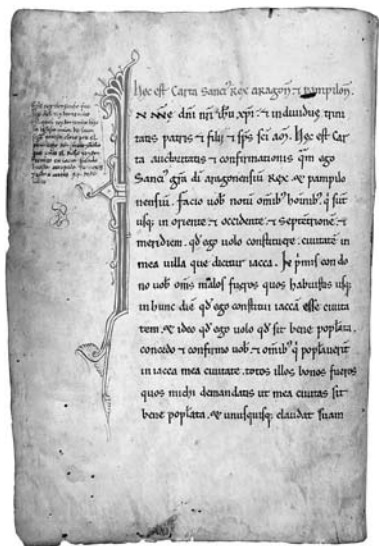 hec est Carta Sancii Rex aragon̄ ⁊ pampilon̄.
N nn̄e dn̄i nr̄i ih̄u xpi ⁊ indiuidue trini
tatis patris ⁊ filii ⁊ sp̄s sci am̄. Hec est Car
ta auctoritatis ⁊ confirmationis qm̄ ego
Sanci gr̄a di aragonensiū Rex & pampilo
nensiū. facio uob̄ notū omib' hoinib'. q̄ sūt
usq; in oriente ⁊ occidente ⁊ septētrionē ⁊
meridiem. qd̄ ego uolo constituere ciuitatē in
mea uilla que dicitur iacca. In p̄mis condo
no uob̄ om̄s malos fueros quos habuistis usq;
in hunc diē qd̄ ego constitui iaccā esse ciuita
tem. & ideo qd̄ ego uolo qd̄ sit bene poplata.
concedo ⁊ confirmo uob̄ ⁊ omib' q̄ poplauerīt
in iacca mea ciuitate. totos illos bonos fueros
quos michi demandastis ut mea ciuitas sit
bene poplata. & unusquisq; claudat suam